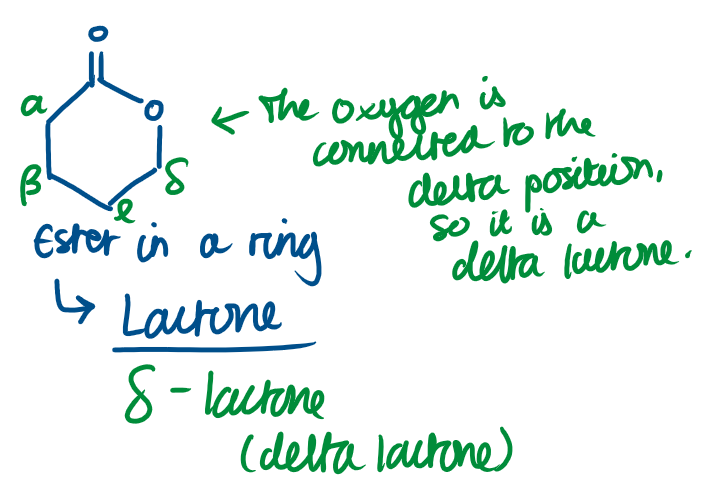 O
α
O
β
e
δ
← The oxygen is
connected to the
delta position,
so it is a
delta lactone.
Ester in a ring
↳ Lactone
δ - lactone
(delta lactone)